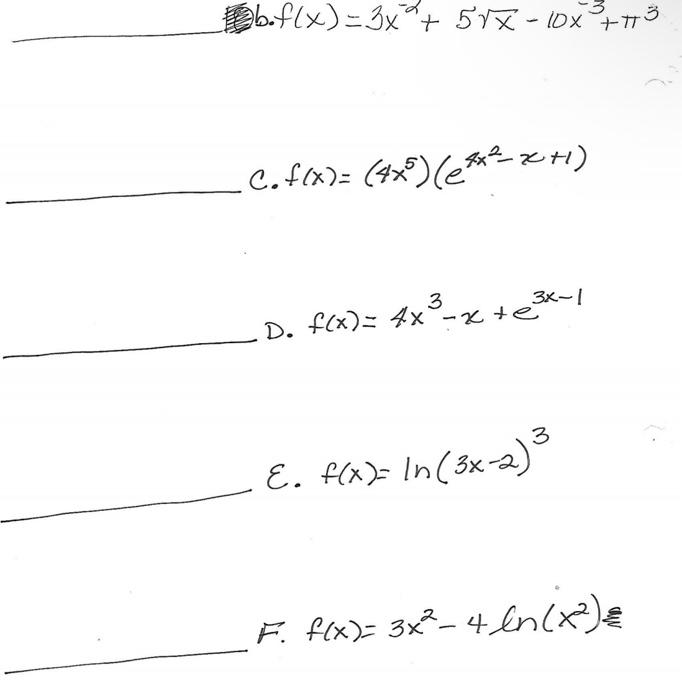 b. f(x) = 3x⁻² + 5√x - 10x⁻³ + π³
C. f(x) = (4x⁵)(e^(4x² - x + 1))
D. f(x) = 4x³ - x + e^(3x-1)
E. f(x) = ln(3x-2)³
F. f(x) = 3x² - 4 ln(x²)